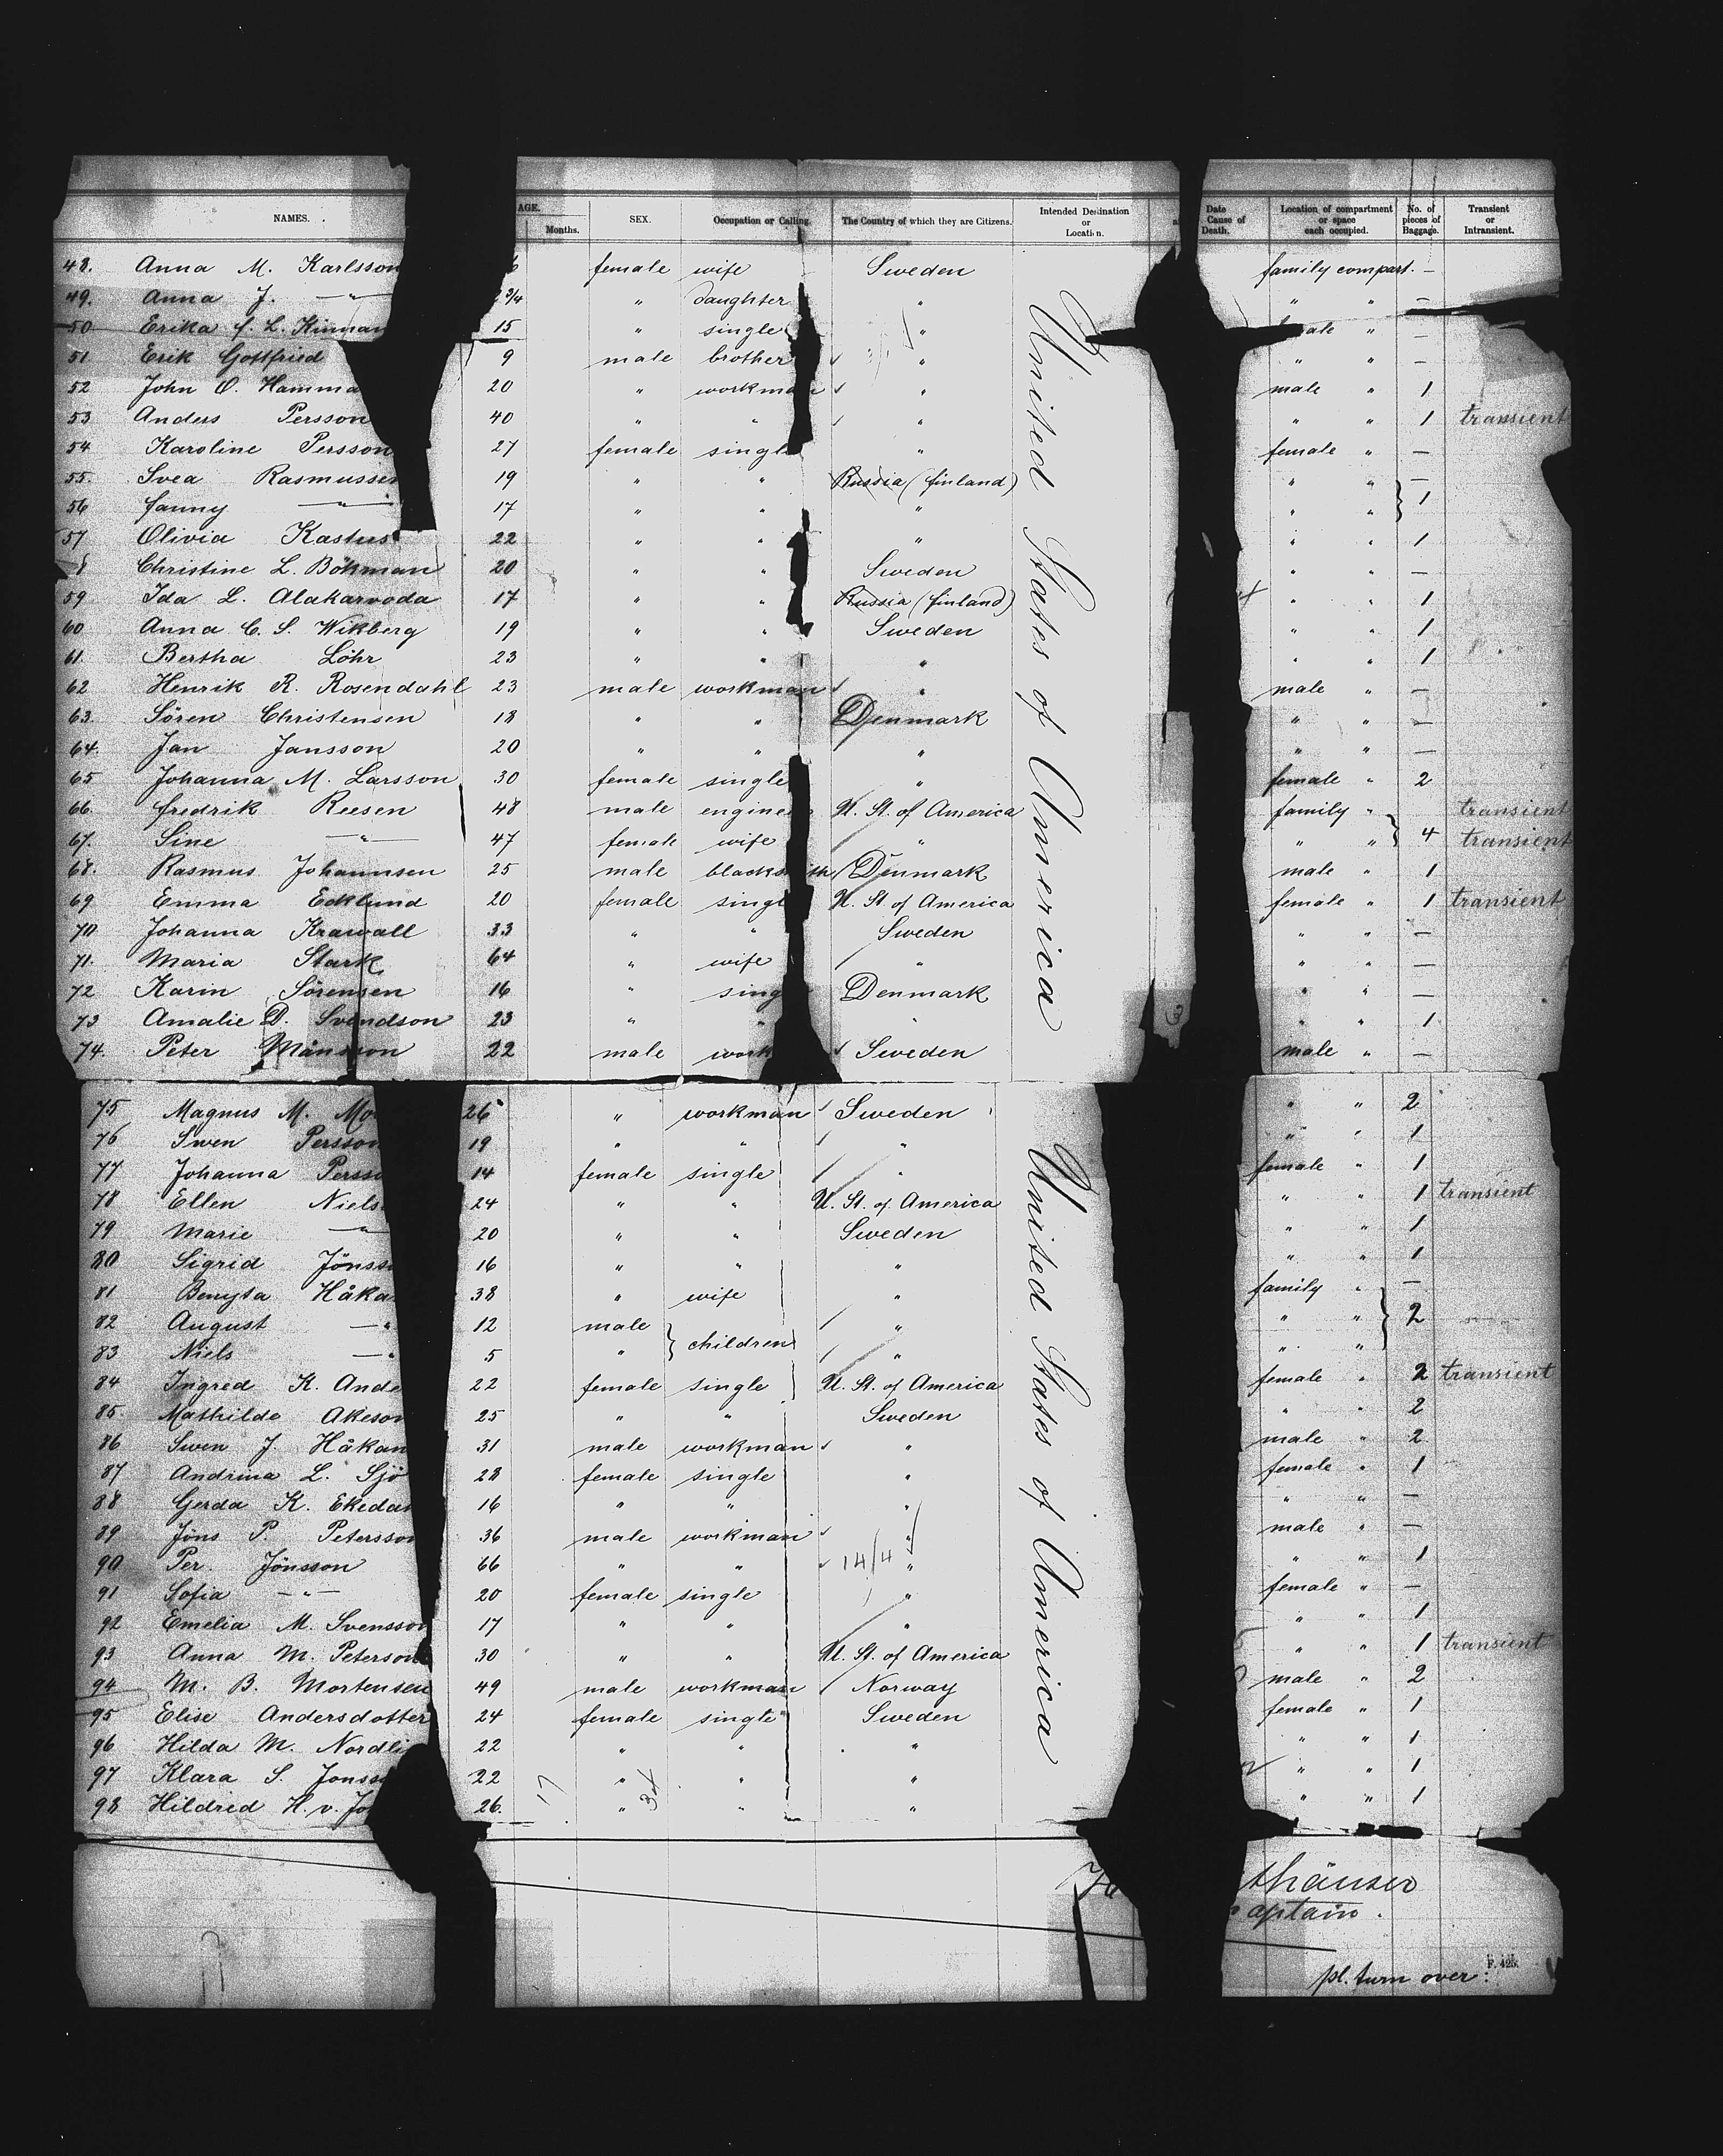 NAMES. AGE. Months. SEX. Occupation or Calling. The Country of which they are Citizens. Intended Destination or Location. Date Cause of Death. Location of compartment or space each occupied. No. of pieces of Baggage. Transient or Intransient.
48. Anna M. Karlsson 6 female wife Sweden family compart. —
49. Anna J. —"— 3/4 " daughter " " " —
50 Erika f. L. 15 " single " " —
51 Erik Gottfried 9 male brother " " " —
52 John O. Hamma 20 " workman " male " 1
53 Anders Persson 40 " " " " " 1 transient
54 Karoline Persson 27 female single " female " —
55. Svea Rasmussen 19 " " Russia (finland) " " —
56 fanny —"— 17 " " " " " } 1
57 Olivia Kastus 22 " " " " " 1
Christine L. Bökman 20 " " Sweden " " —
59 Ida L. Alakarvoda 17 " " Russia (finland) " " 1
60 Anna C. S. Wikberg 19 " " Sweden " " 1
61 Bertha Löhr 23 " " " " " 1
62 Henrik R. Rosendahl 23 male workman " male " —
63. Sören Christensen 18 " " Denmark " " —
64. Jan Jansson 20 " " " " " —
65 Johanna M. Larsson 30 female single " female " 2
66. fredrik Reesen 48 male engineer U. St. of America family " transient
67. Sine —"— 47 female wife " " " } 4 transient
68. Rasmus Johannsen 25 male blacksmith Denmark male " 1
69 Emma Ecklund 20 female singl U. St. of America female " 1 transient
70 Johanna Krawall 33 " " Sweden " " —
71. Maria Stark 64 " wife " " " —
72 Karin Sörensen 16 " sing Denmark " " —
73 Amalie D. Svendson 23 " " " " " 1
74. Peter Månsson 22 male work Sweden male " —
United States of America
75 Magnus M. Mo 26 " workman Sweden " " 2
76 Swen Persson 19 " " " " " 1
77 Johanna Persso 14 female single " female " 1
78 Ellen Niels 24 " " U. St. of America " " 1 transient
79 Marie —"— 20 " " Sweden " " 1
80 Sigrid Jönss 16 " " " " " 1
81 Bengta Håka 38 " wife " family " —
82 August —" 12 male } children " " " } 2
83 Niels —" 5 " " " "
84 Ingred K. Ande 22 female single U. St. of America female " 2 transient
85. Mathilde Akeson 25 " " Sweden " " 2
86 Swen J. Håkan 31 male workman " male " 2
87 Andrina L. Sjö 28 female single " female " 1
88 Gerda K. Ekedah 16 " " " " " —
89 Jöns P. Petersson 36 male workman " male " —
90 Per Jönsson 66 " " 14/4 " " " 1
91 Sofia —"— 20 female single " female " —
92 Emelia M. Svensson 17 " " " " " 1
93 Anna M. Peterson 30 " " U. St. of America " " 1 transient
94 M. B. Mortensen 49 male workman Norway male " 2
95 Elise Andersdotter 24 female single Sweden female " 1
96 Hilda M. Nordli 22 " " " " " 1
97 Klara S. Jonss 22 " " " " " 1
98 Hildred H. v. Jo 26. " " " " " 1
United States of America
17 34
76
thäuser
aptain.
F. 425.
pl. turn over: